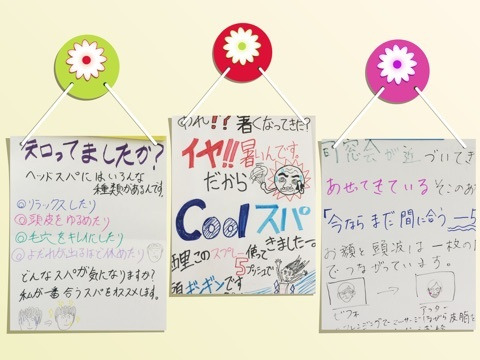 知ってましたか？
ヘッドスパにはいろんな
種類があるんです。
①リラックスしたり
②頭皮をゆるめたり
③毛穴をキレイにしたり
④よだれが出るほど休めたり
どんなスパが気になりますか？
私が一番合うスパをオススメします。
あれ！？暑くなってきた？
イヤ!!暑いんです。
だから
Coolスパ
きました〜。
このスプレー使って
5プッシュで
ギンギンです
窓会が近づいてき
あせてきている そこのあ
「今ならまだ間に合う
お顔と頭皮は一枚の
でつながっています。
ビフォ
アフター